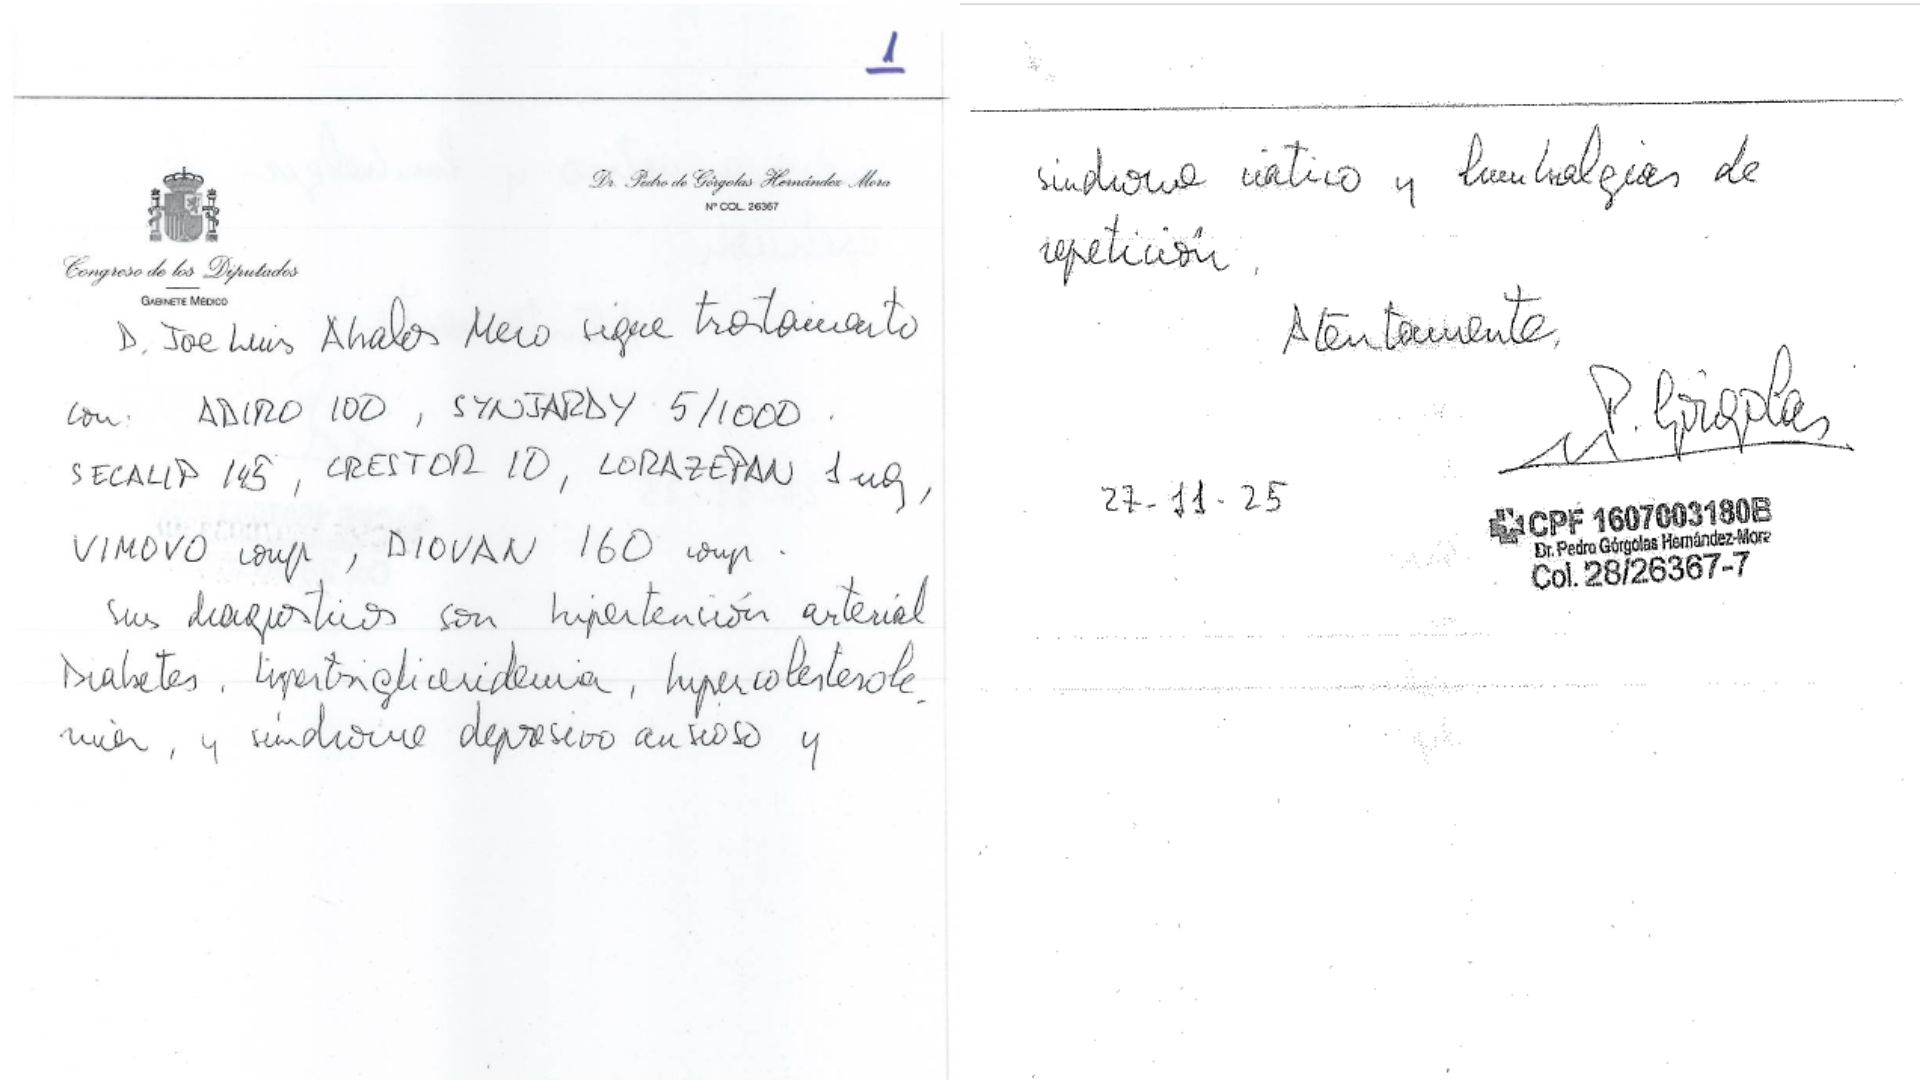 1
Congreso de los Diputados
GABINETE MÉDICO
Dr. Pedro de Górgolas Hernández Mora
Nº COL. 26367
D. Joe Luis Abalos Meco sigue tratamiento
con: ADIRO 100, SYNJARDY 5/1000.
SECALIP 145, CRESTOR 10, LORAZEPAN 1 mg,
VIMOVO comp, DIOVAN 160 comp.
Sus diagnosticos son hipertención arterial
Diabetes, hipertrigliceridemia, hipercolesterole-
mia, y síndrome depresivo ansioso y
síndrome ciático y lumbalgias de
repetición.
Atentamente,
P. Górgolas
27-11-25
CPF 1607003180B
Dr. Pedro Górgolas Hernández-Mora
Col. 28/26367-7